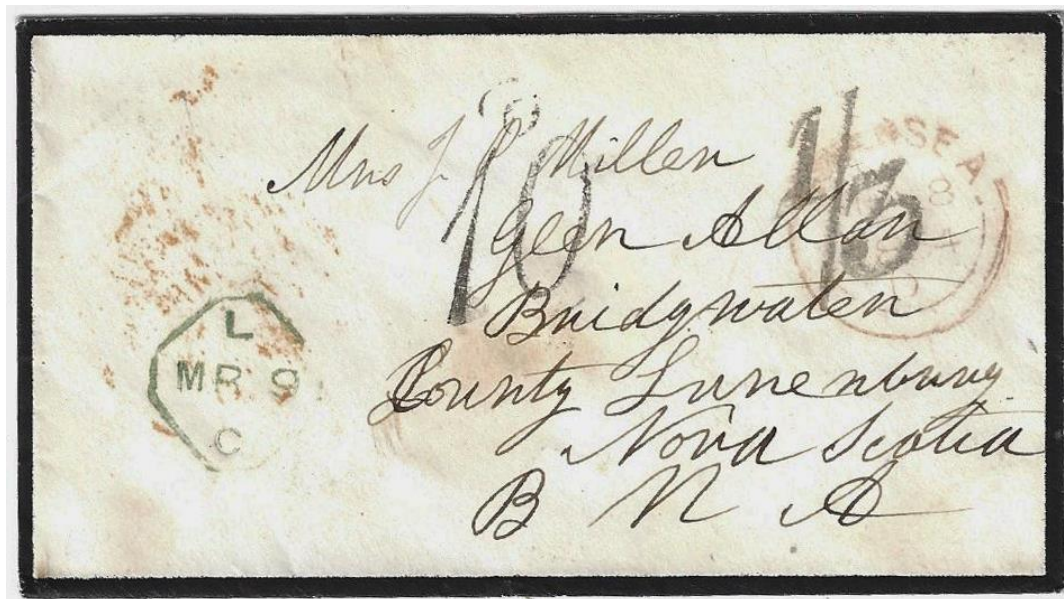 Mrs J Millen
Geen Allan
Bridgwaten
County Lunenburg
Nova Scotia
B N A
10
1/3
L
MR 9
C